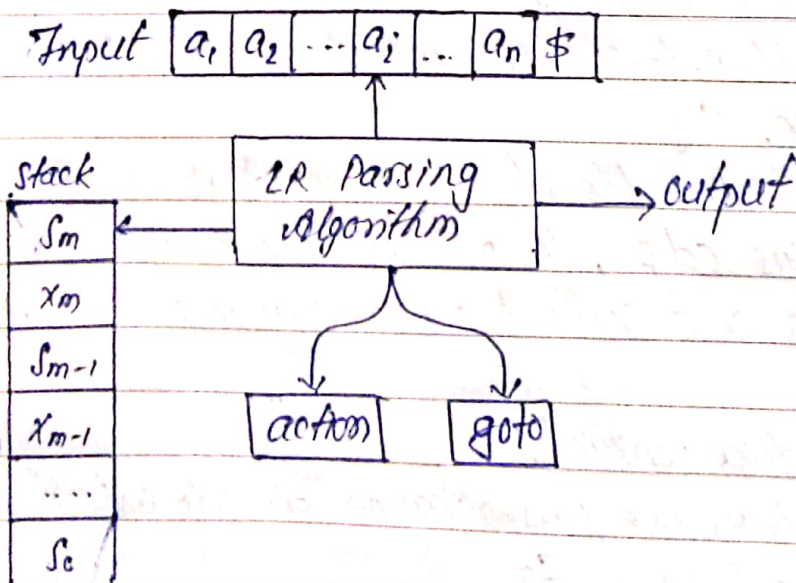 Input a₁ a₂ ... aᵢ ... aₙ $
stack
LR Parsing
Algorithm
output
Sm
Xm
Sm-1
Xm-1
action goto
....